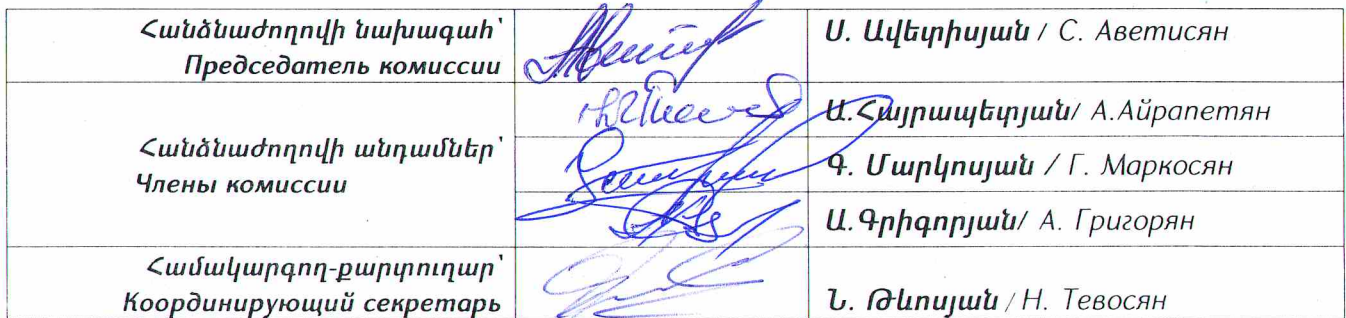 Հանձնաժողովի նախագահ՝
Председатель комиссии
Ս. Ավետիսյան / С. Аветисян
Հանձնաժողովի անդամներ՝
Члены комиссии
Ա.Հայրապետյան/ А.Айрапетян
Գ. Մարկոսյան / Г. Маркосян
Ա.Գրիգորյան/ А. Григорян
Համակարգող-քարտուղար՝
Координирующий секретарь
Ն. Թևոսյան / Н. Тевосян